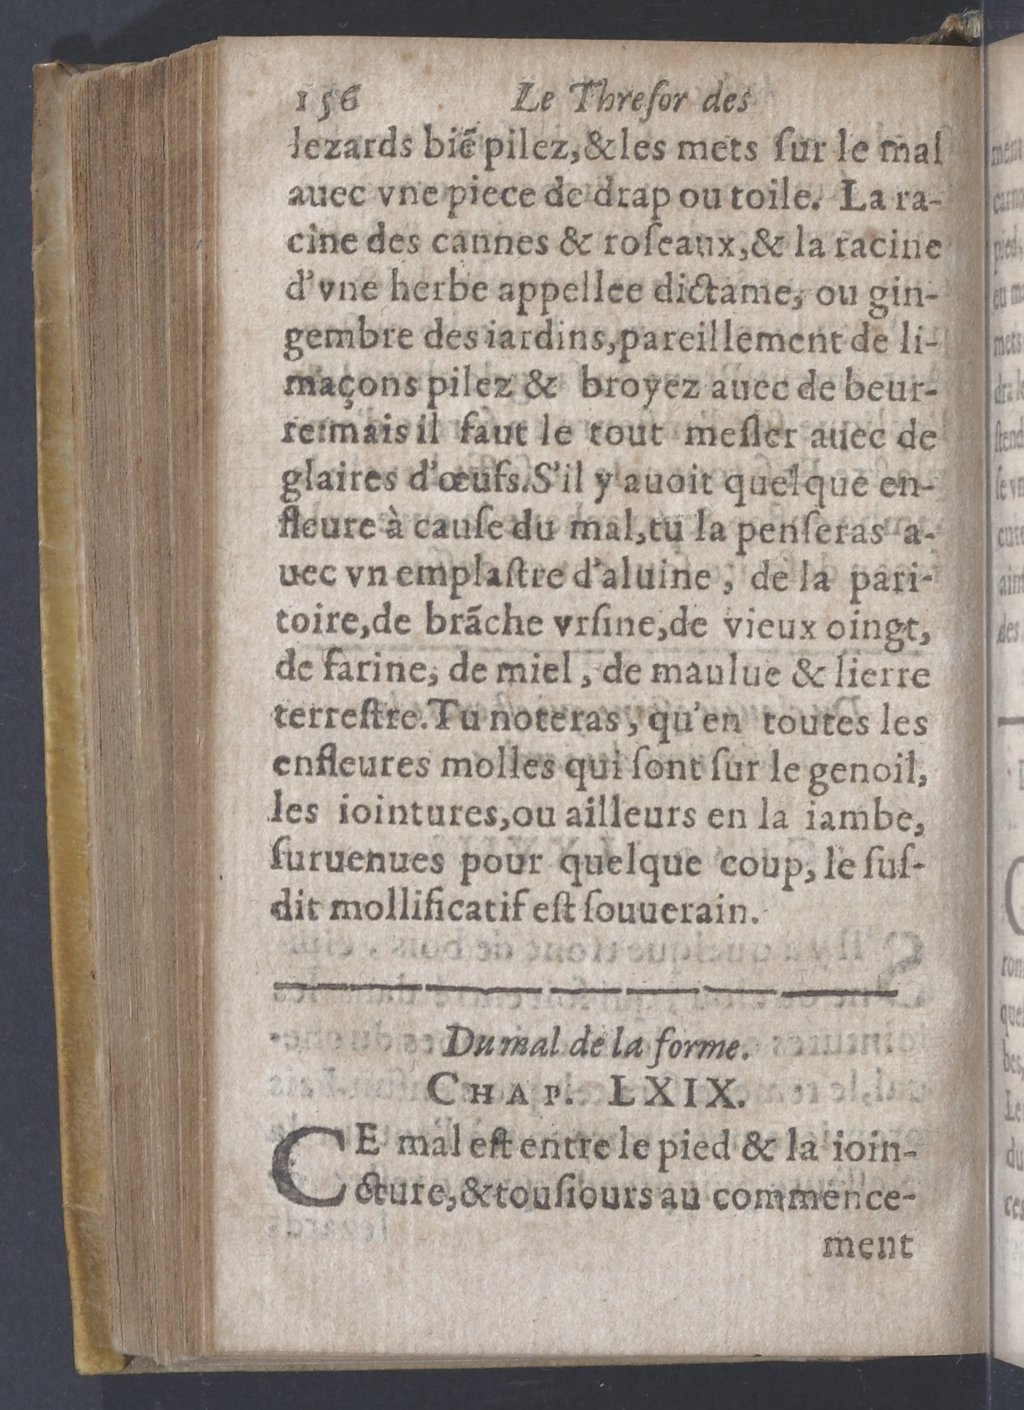 156 Le Threſor des
lezards biẽ pilez,&les mets ſur le mal
auec vne piece de drap ou toile. La ra-
cine des cannes & roſeaux,& la racine
d'vne herbe appellee dictame, ou gin-
gembre des iardins,pareillement de li-
maçons pilez & broyez auec de beur-
re:mais il faut le tout meſler auec de
glaires d'œufs.S'il y auoit quelque en-
fleure à cauſe du mal,tu la penſeras a-
uec vn emplaſtre d'aluine , de la pari-
toire,de brãche vrſine,de vieux oingt,
de farine, de miel , de maulue & lierre
terreſtre.Tu noteras , qu'en toutes les
enfleures molles qui ſont ſur le genoil,
les iointures,ou ailleurs en la iambe,
ſuruenues pour quelque coup, le ſuſ-
dit mollificatif eſt ſouuerain.
Du mal de la forme.
CHAP. LXIX.
CE mal eſt entre le pied & la ioin-
cture,&touſiours au commence-
ment